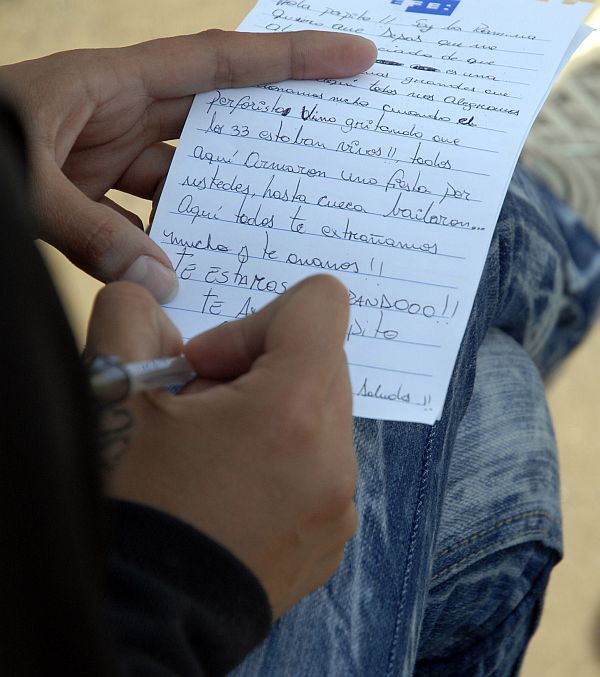 Hola papito!!! Soy la Romina
Quiero que Sepas que me
de que
es una
grandes que
aquí todos nos Alegramos
mucho cuando el
perforista vino gritando que
los 33 estaban vivos!!, todos
Aquí Armaron una fiesta por
ustedes, hasta cueca bailaron...
Aquí todos te extrañamos
mucho y te amamos!!
TE ESTAREMOS RANDOOO!!
TE A pito
Saludos!!